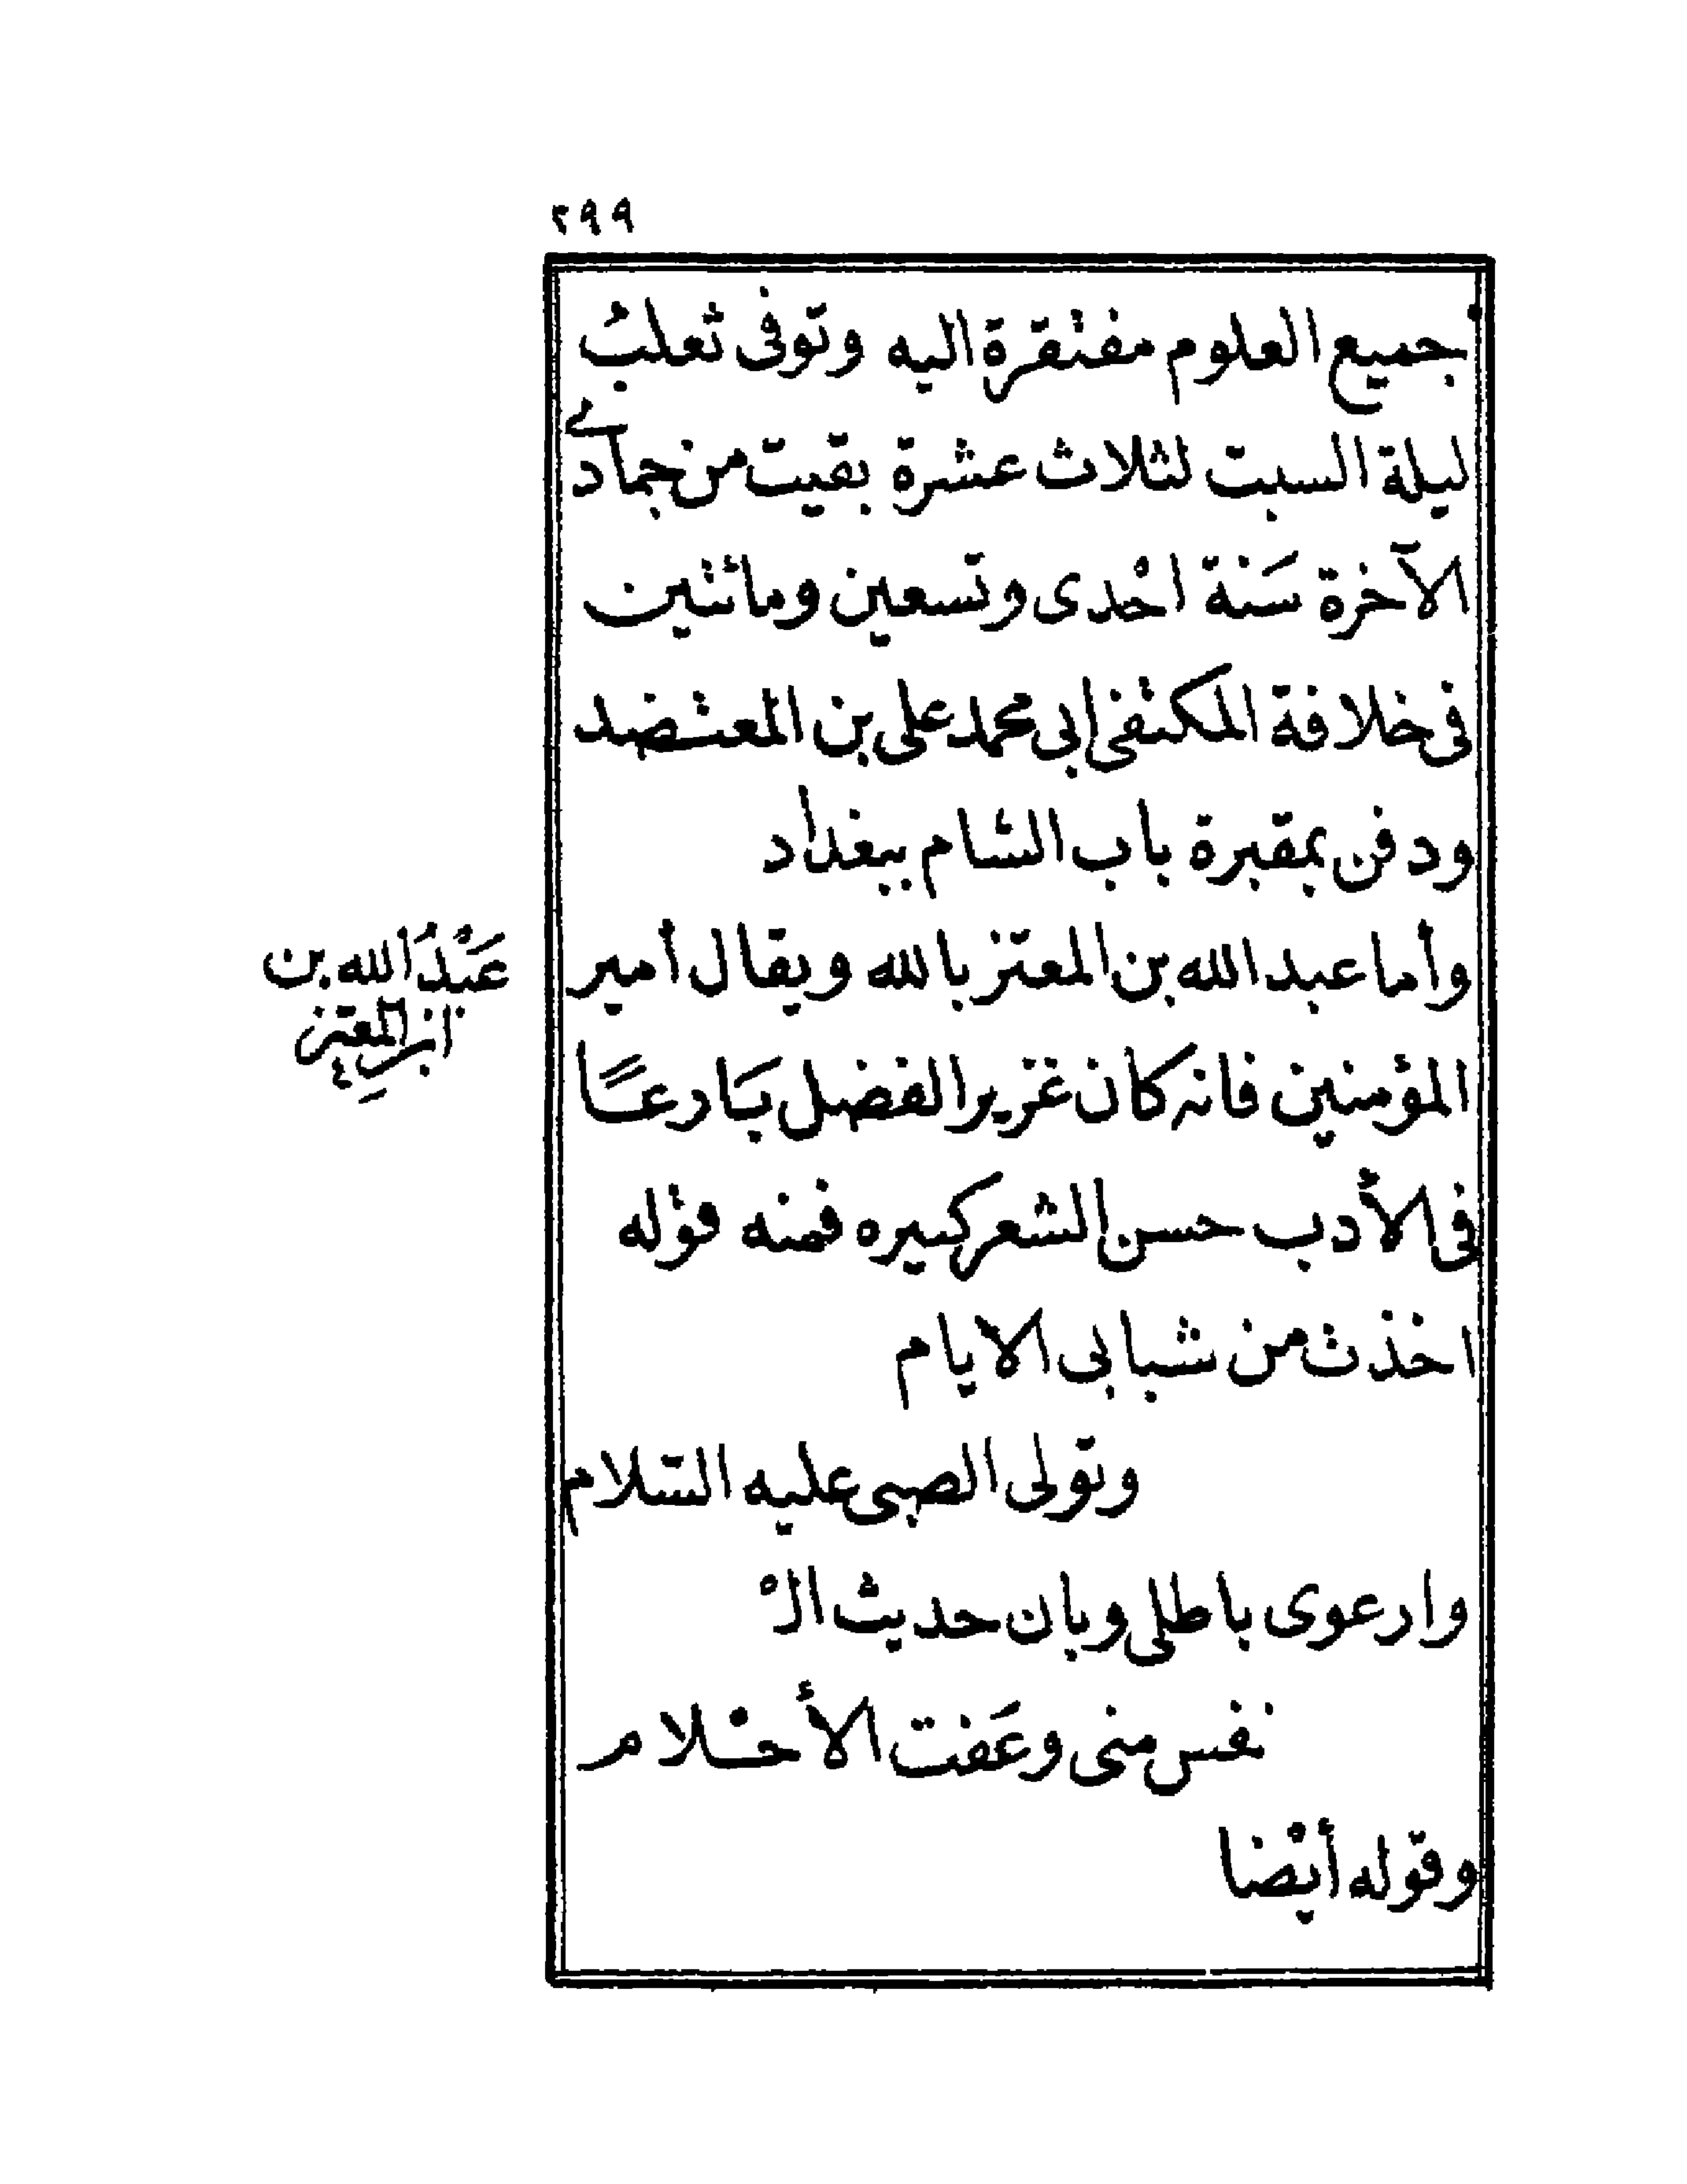 ٢٩٩
جميع العلوم مفتقرة اليه وتوفى ثعلبُ
ليلة السبت لثلاث عشرة بقيت من جمادى
الآخرة سَنة احْدى وتسعين ومائتين
فى خلافة المكتفى ابى محمد على بن المعتضد
ودفن بمقبرة باب الشام ببغداد
وأما عبد الله بن المعتز بالله ويقال أمير
المؤمنين فانه كان غزير الفضل بَارعًا
فى الأدب حسن الشعر كثيره فمنه قوله
اخذت من شبابى الايام
وتولى الصبى عليه السّلام
وارعوى باطلى وبان حديث الْ
نفس منى وعَفت الأحْلام
وقوله أيْضا
عَبْدُ الله بن
المعتز